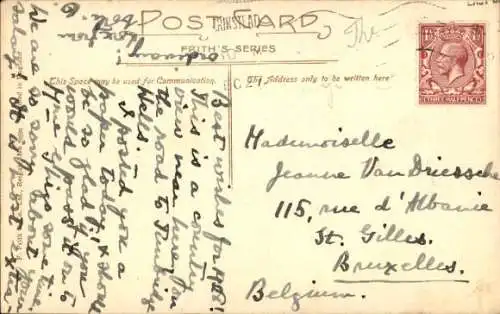 POSTCARD
FRITH'S SERIES
This Space may be used for Communication.
The Address only to be written here
THREE HALFPENCE
Mademoiselle
Jeanne Van Driessche
115, rue d'Albanie
St. Gilles.
Bruxelles.
Belgium.
Best wishes for
This is a country
view near here, on
the road to Tunbridge
Wells.
I posted you a
paper today, & should
be so glad if you
would post it on to
some time
We are so sorry about your
salary! It is most
ordinary!